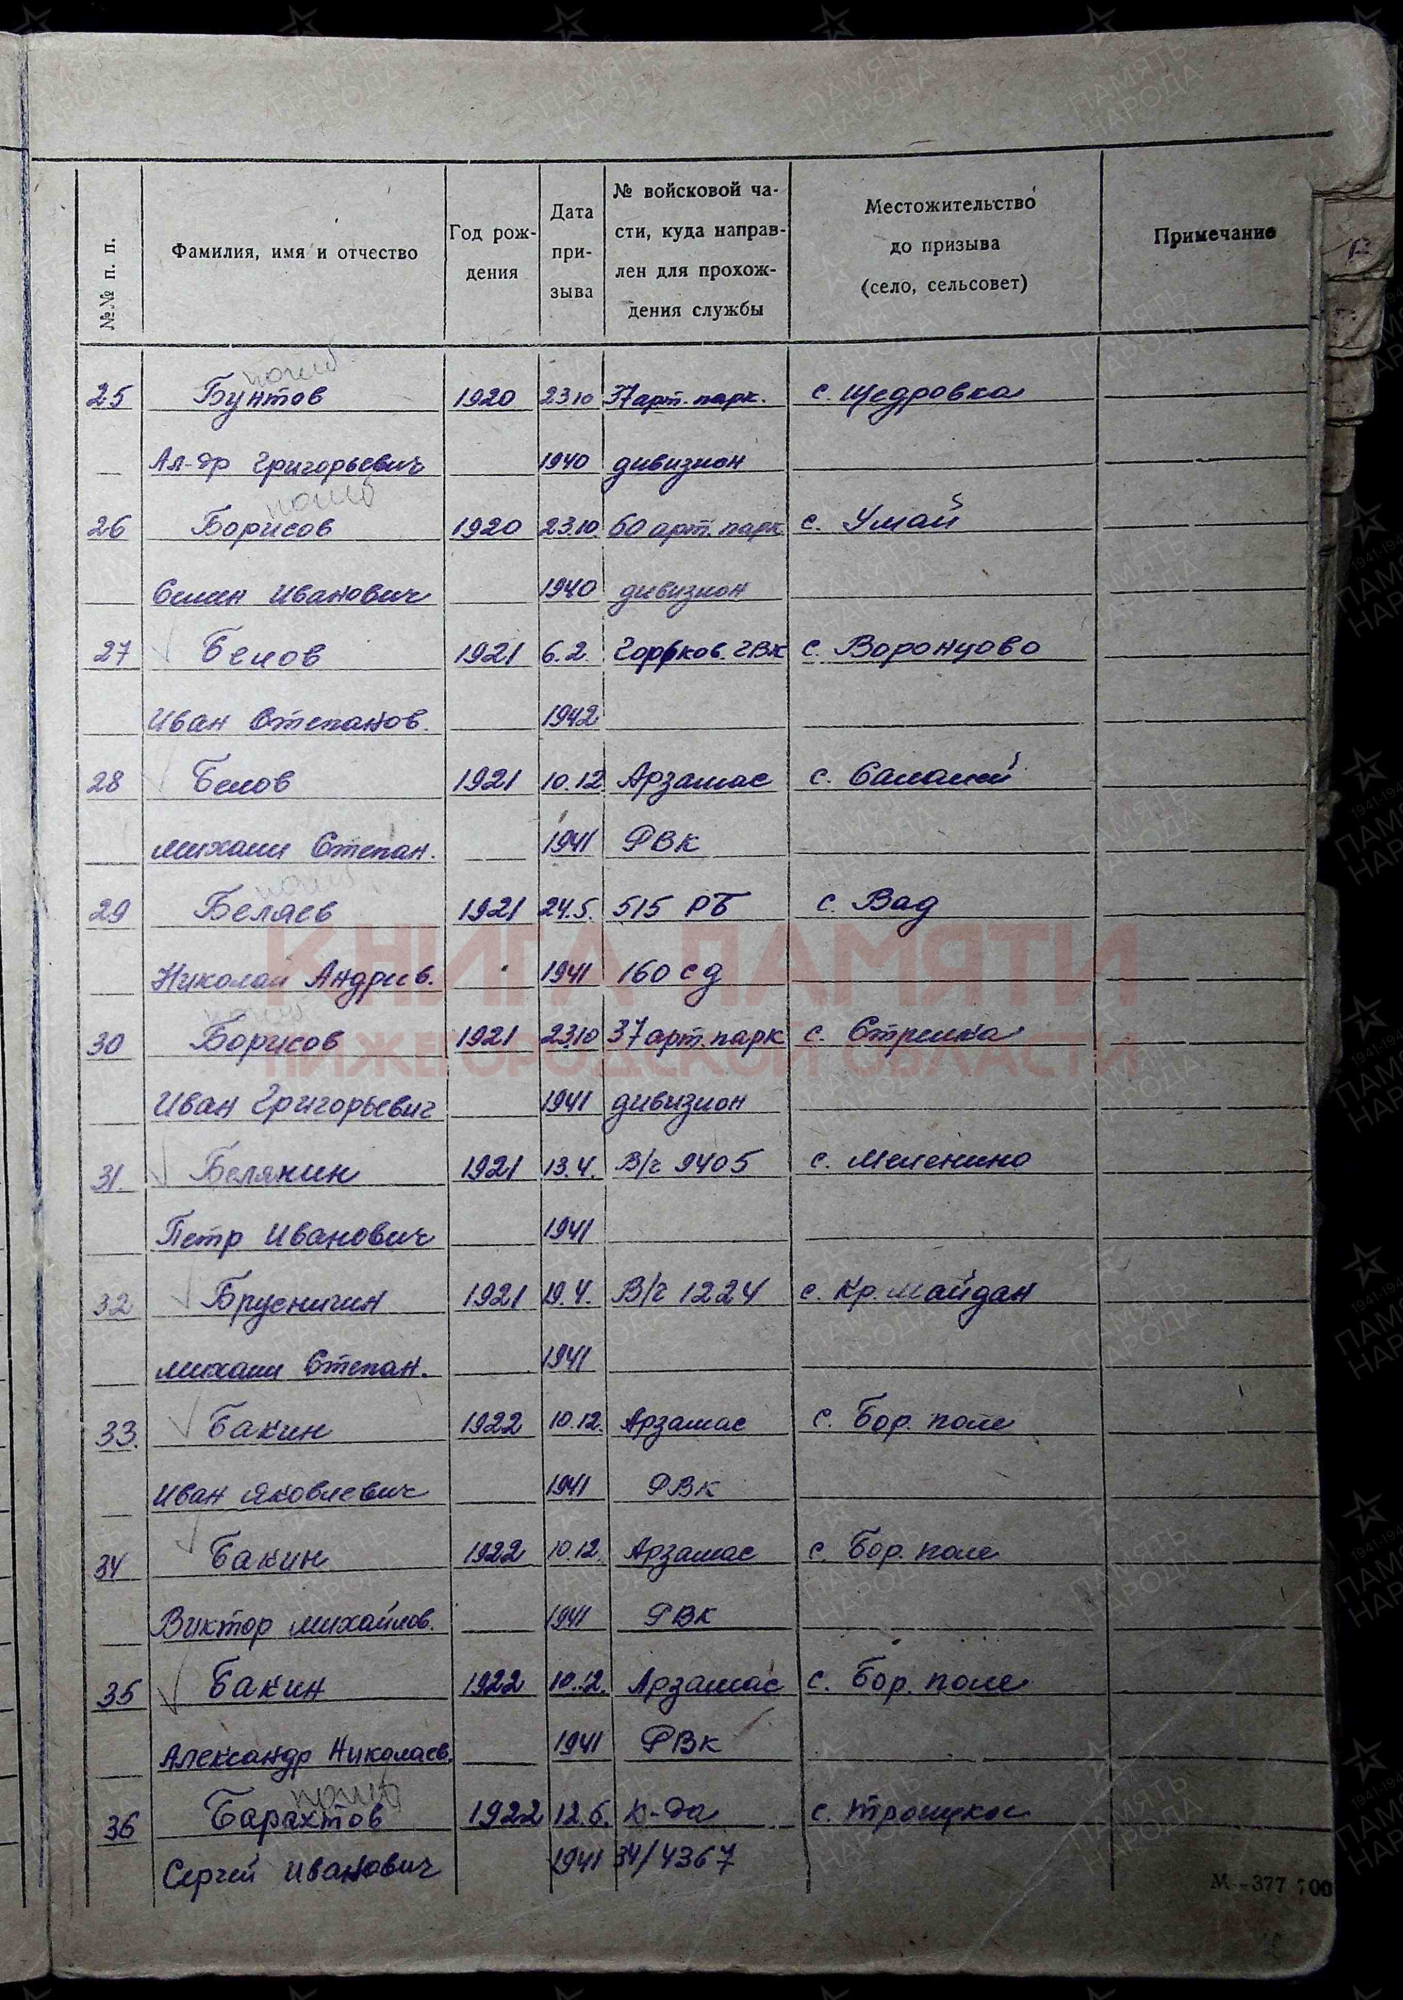 №№ п. п.
Фамилия, имя и отчество
Год рож-
дения
Дата
при-
зыва
№ войсковой ча-
сти, куда направ-
лен для прохож-
дения службы
Местожительство
до призыва
(село, сельсовет)
Примечание
погиб
25 Бунтов 1920 23.10 37 арт. парк. с. Щедровка
Ал-др Григорьевич 1940 дивизион
погиб
26 Борисов 1920 23.10 60 арт. парк с. Умай
Семен Иванович 1940 дивизион
27 Белов 1921 6.2. Горьков. ГВК с. Воронцово
Иван Степанов. 1942
28 Белов 1921 10.12 Арзамас с. Салалей
Михаил Степан. 1941 РВК
погиб
29 Беляев 1921 24.5. 515 РБ с. Вад
Николай Андреев. 1941 160 сд
КНИГА ПАМЯТИ
НИЖЕГОРОДСКОЙ ОБЛАСТИ
погиб
30 Борисов 1921 23.10 37 арт. парк с. Стрелка
Иван Григорьевич 1941 дивизион
31 Белянин 1921 13.4. В/ч 9405 с. Меленино
Петр Иванович 1941
32 Брусничин 1921 19.4. В/ч 1224 с. Кр. Майдан
Михаил Степан. 1941
33. Бакин 1922 10.12. Арзамас с. Бор. поле
Иван Яковлевич 1941 РВК
34 Бакин 1922 10.12. Арзамас с. Бор. поле
Виктор Михайлов. 1941 РВК
35 Бакин 1922 10.12. Арзамас с. Бор. поле
Александр Николаев. 1941 РВК
погиб
36 Барахтов 1922 12.6. К-да с.
Сергей Иванович 1941 34/4367
М—377 700
ПАМЯТЬ
НАРОДА
1941-1945